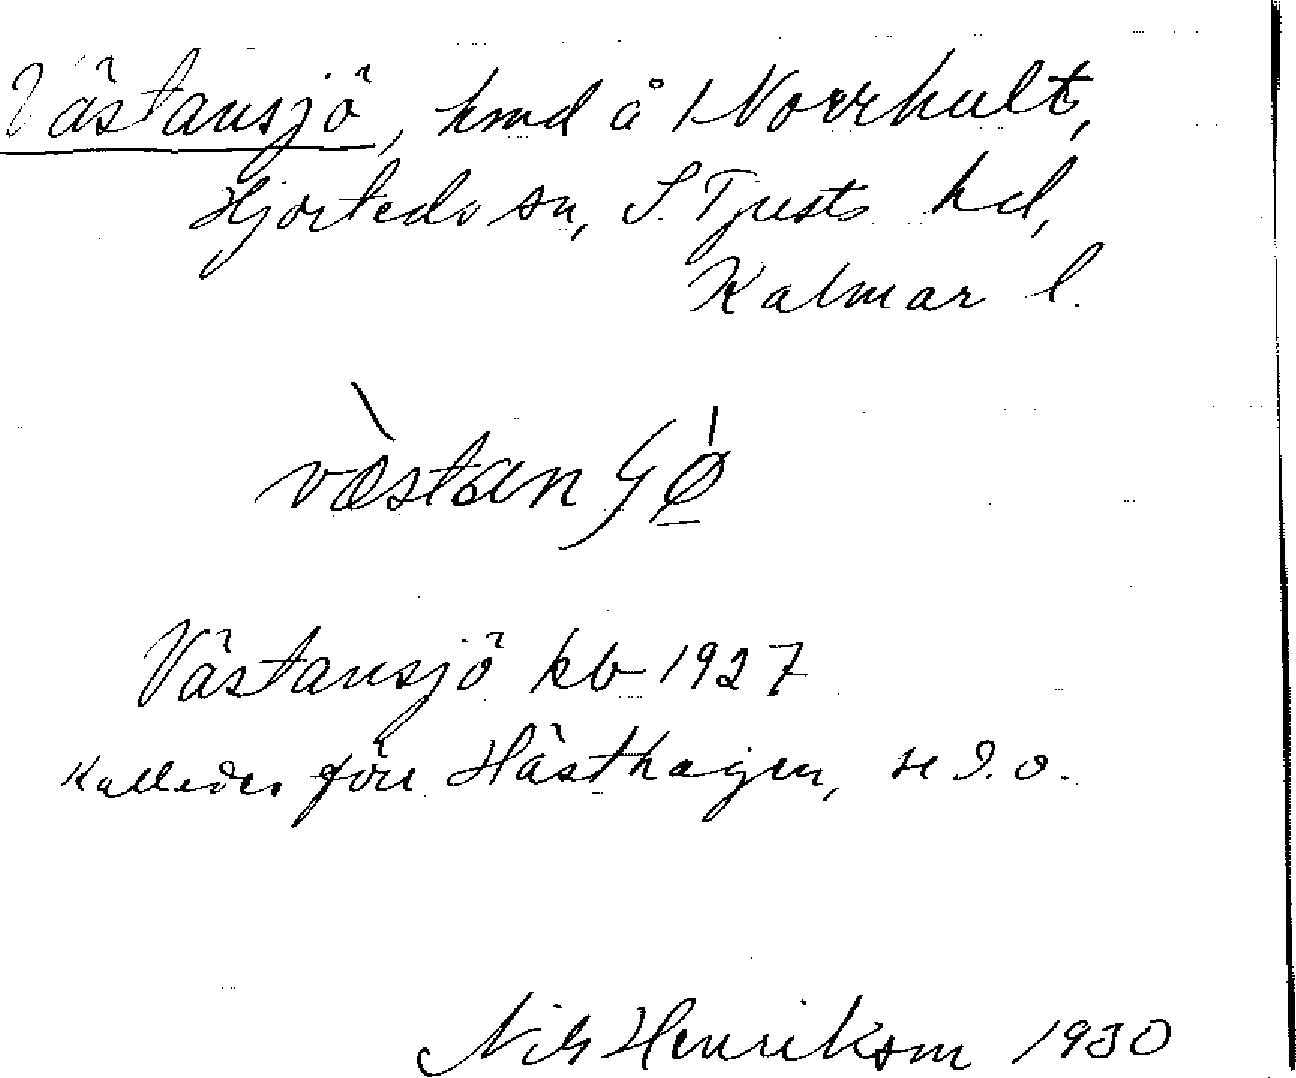 Västansjö, hmd å 1 Norrhult,
Hjorteds sn, S. Tjusts hd,
Kalmar l.
Västansjö kb 1927
Kallades förr Hästhagen, se d. o.
Nils Henrikson 1930